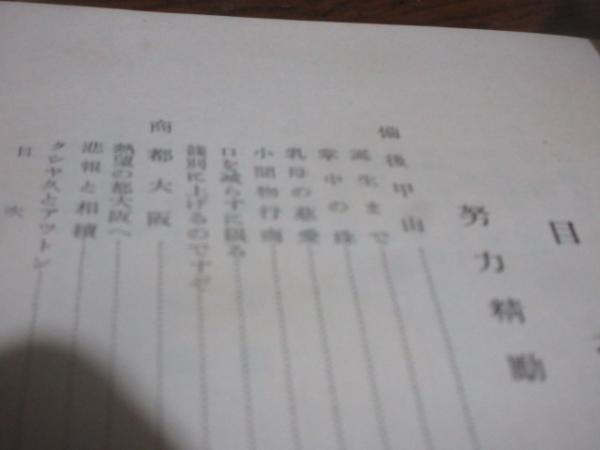 目
努力精励
備後甲山
誕生まで
掌中の珠
乳母の慈愛
小間物行商
口を減らすに限る
餞別に上げるのですぞ
商都大阪
熱望の都大阪へ
悲報と相続
タシヤ久とアツトン
目次